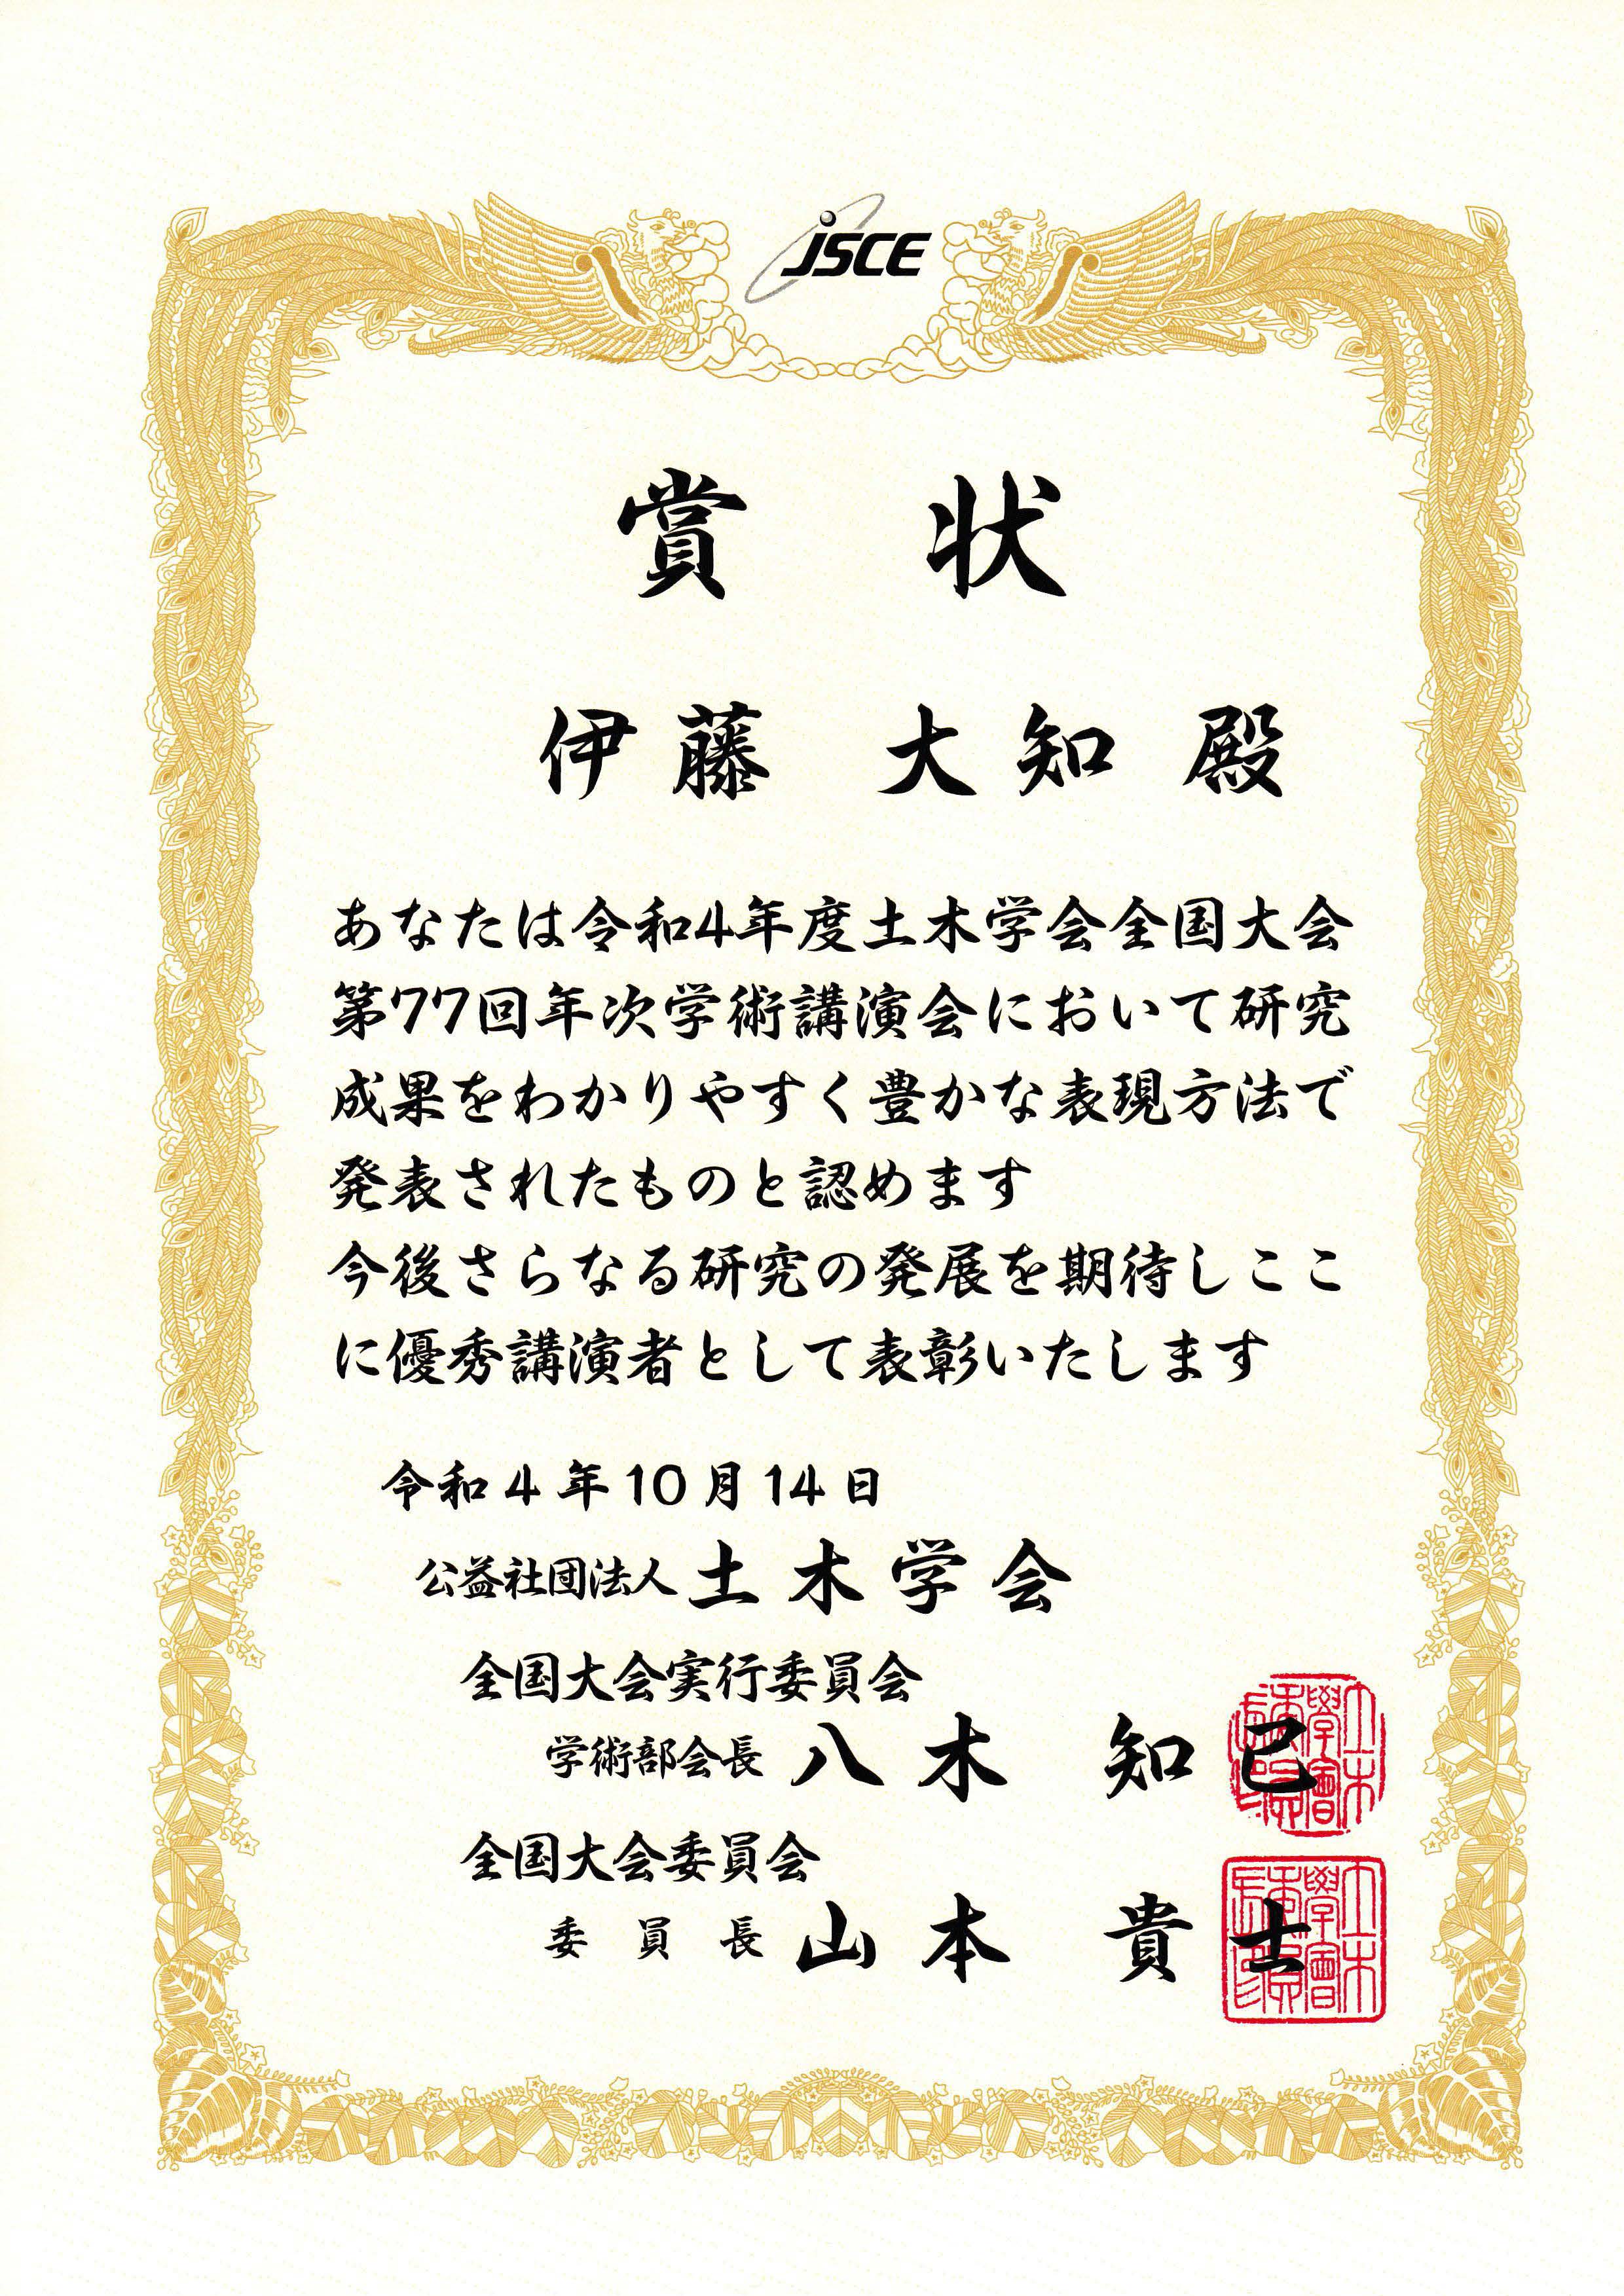 JSCE
賞 状
伊藤 大知 殿
あなたは令和4年度土木学会全国大会
第77回年次学術講演会において研究
成果をわかりやすく豊かな表現方法で
発表されたものと認めます
今後さらなる研究の発展を期待しここ
に優秀講演者として表彰いたします
令和4年10月14日
公益社団法人土木学会
全国大会実行委員会
学術部会長 八木 知己
全国大会委員会
委員長 山本 貴士